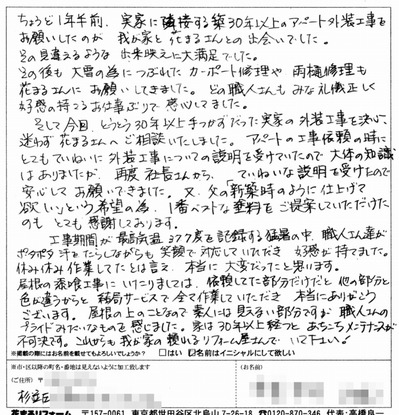 ちょうど1年半前、実家に隣接する築30年以上のアパート外装工事を
お願いしたのが 我が家と花まるさんとの出会いでした。
その見違えるような出来映えに大満足でした。
その後も大雪の為につぶれたカーポート修理や雨樋修理も
花まるさんに お願いしてきました。どの職人さんも みな礼儀正しく
好感の持てるお仕事ぶりで感心してました。
そして今回、とうとう30年以上手つかずだった実家の外装工事を決心、
迷わず花まるさんへご相談いたしました。アパートの工事依頼の時に
とてもていねいに外装工事についての説明を受けていたので大体の知識
はありましたが、再度社長さんから、ていねいな説明を受けたので
安心してお願いできました。又、父の「新築時のように仕上げて
欲しい」という希望の為、1番ベストな塗料をご提案していただけた
のも とても感謝しております。
工事期間が最高気温37.7度を記録する猛暑の中、職人さん達が
ポタポタ汗をたらしながらも笑顔で対応していただき 好感が持てました。
休み休み作業してたとは言え、本当に大変だったと思います。
屋根の葺工事にいたりましては、依頼してた部分だけだと他の部分と
色が違うからと 結局サービスで全て作業していただき 本当にありがとう
ございます。屋根の上のことなので素人には見えない部分ですが 職人さんの
プライドみたいなものを感じました。家は30年以上経つと あちこちメンテナンスが
不可欠です。これからも我が家の頼れるリフォーム屋さんで いて下さい。
※掲載の際にはお名前を載せてもよろしいでしょうか？ □はい ☑名前はイニシャルにして欲しい
※市・区以降の町名・番地は見えないように加工致します
（ご住所） 〒
（お名前）
杉並区
花まるリフォーム 〒157-0061 東京都世田谷区北烏山7-26-18 ☎0120-870-346 代表：高橋良一